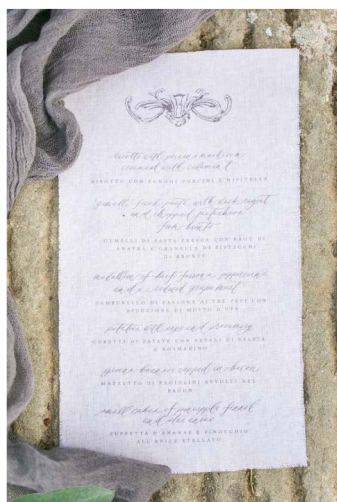 risotto with porcini mushroom
creamed with
RISOTTO CON FUNGHI PORCINI E
gemelli fresh pasta with duck ragout
and chopped pistachios
from bronte
GEMELLI DI PASTA FRESCA CON RAGU DI
ANATRA E GRANELLA DI PISTACCHI
DI BRONTE
medallion of beef fassona
and a reduced grape must
DI FASSONA AI TRE PEPI CON
RIDUZIONE DI MOSTO D'UVA
potatoes with sage and rosemary
CUBETTI DI PATATE CON PETALI DI SALVIA
E ROSMARINO
green beans wrapped in bacon
MAZZETTO DI FAGIOLINI AVVOLTI NEL
BACON
small cubes of pineapple fennel
and star anise
CUBETTI D'ANANAS E FINOCCHIO
ALL'ANICE STELLATO